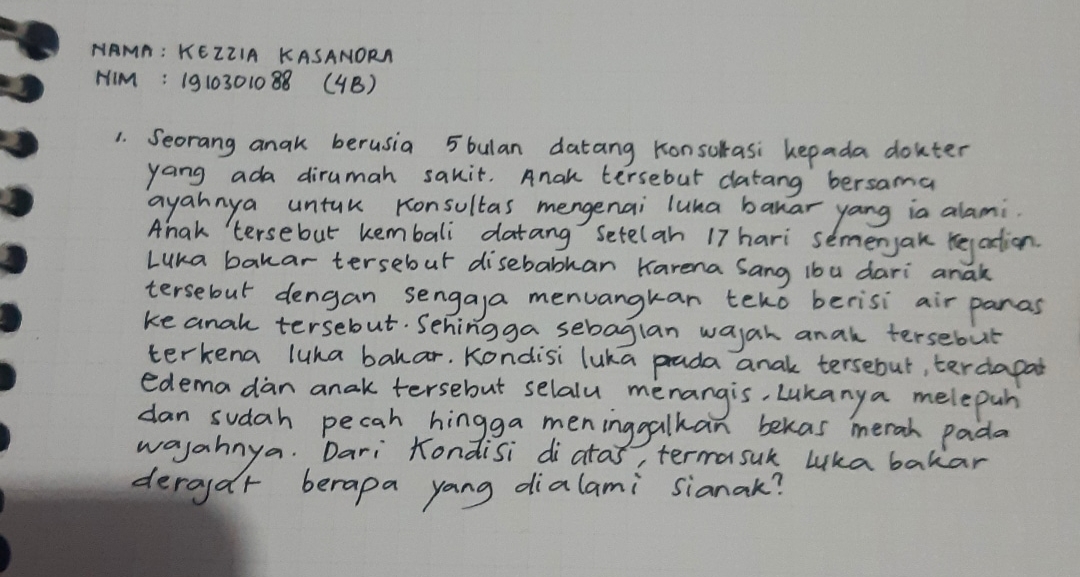 NAMA : KEZZIA KASANDRA
NIM : 1910301088 (4B)
1. Seorang anak berusia 5 bulan datang konsultasi kepada dokter
yang ada dirumah sakit. Anak tersebut datang bersama
ayahnya untuk konsultas mengenai luka bakar yang ia alami.
Anak tersebut kembali datang setelah 17 hari semenjak kejadian.
Luka bakar tersebut disebabkan karena sang ibu dari anak
tersebut dengan sengaja menuangkan teko berisi air panas
ke anak tersebut. Sehingga sebagian wajah anak tersebut
terkena luka bakar. Kondisi luka pada anak tersebut, terdapat
edema dan anak tersebut selalu menangis. Lukanya melepuh
dan sudah pecah hingga meninggalkan bekas merah pada
wajahnya. Dari kondisi di atas, termasuk luka bakar
derajat berapa yang dialami sianak?